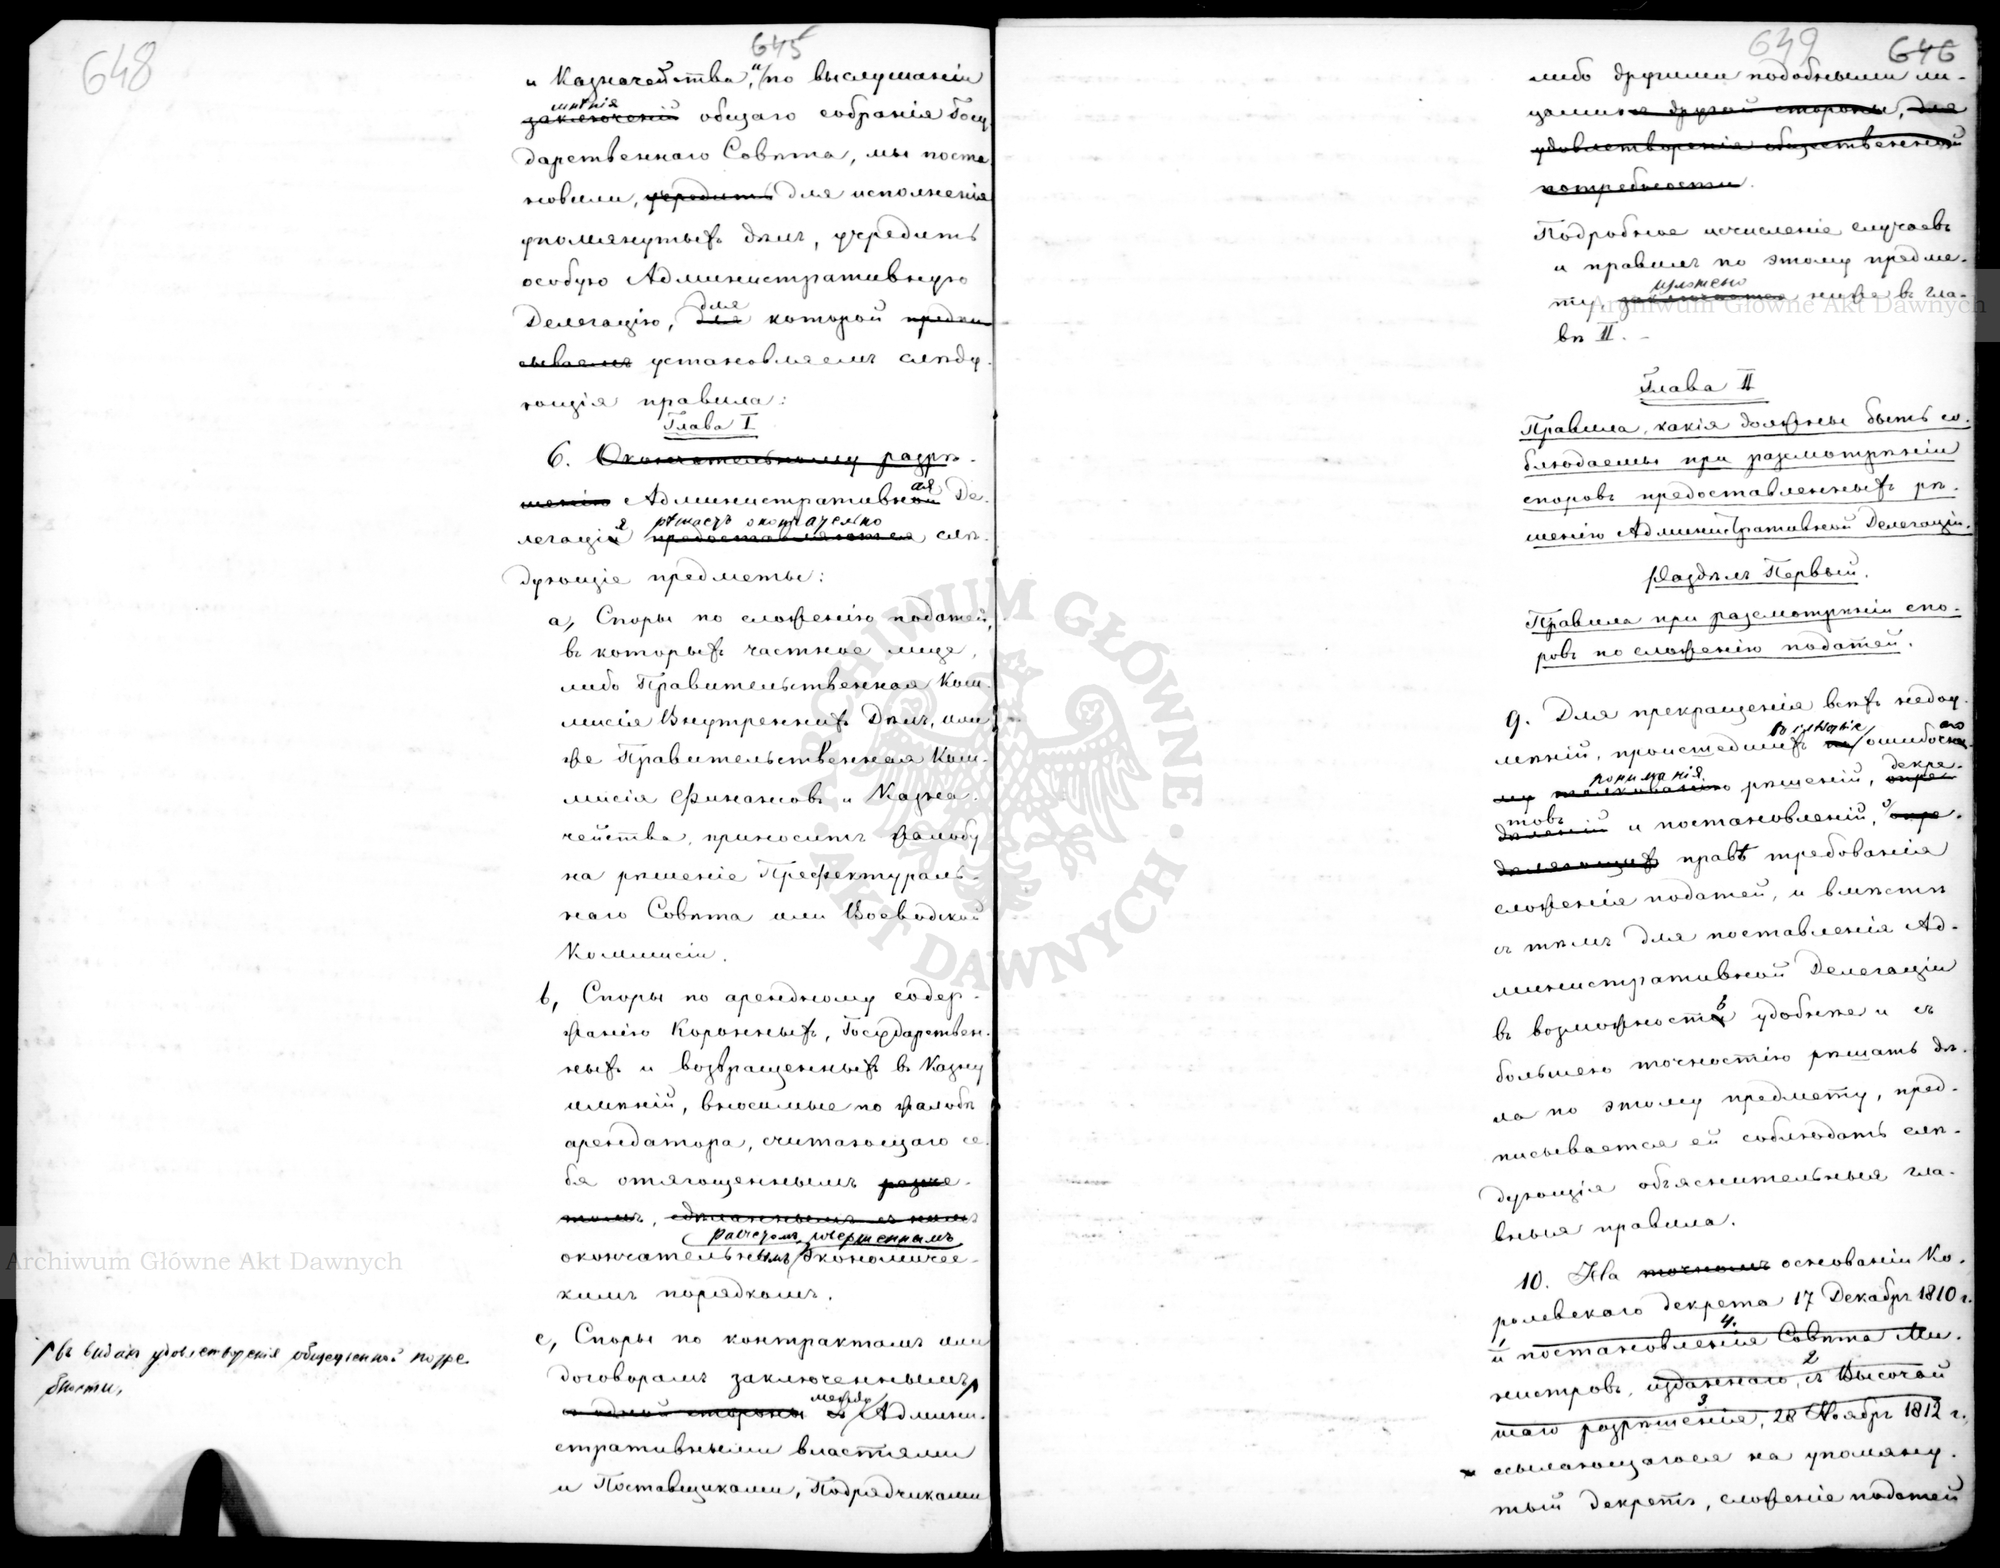 648
645
и Казначейства, и по выслушаніи
мнѣнія
заключеній общаго собранія Госу-
дарственнаго Совѣта, мы поста-
новили, учредить для исполненія
упомянутыхъ дѣлъ, учредить
особую Административную
для
Делегацію, для которой предпи-
сываемъ установляемъ слѣду-
ющія правила:
Глава I
6. Окончательному разрѣ-
шенію Административной ая Де-
я рѣшаетъ окончательно
легаціи предоставляются слѣ-
дующіе предметы:
а, Споры по сложенію податей,
въ которыхъ частное лице,
либо Правительственная Ком-
мисія Внутреннихъ Дѣлъ, или
же Правительственная Ком-
мисія Финансовъ и Казна-
чейства, приноситъ жалобу
на рѣшеніе Префектураль-
наго Совѣта или Воеводской
Коммисіи.
b, Споры по арендному содер-
жанію Коронныхъ, Государствен-
ныхъ и возвращенныхъ въ Казну
имѣній, вносимые по жалобѣ
арендатора, считающаго се-
бя отягощеннымъ разче-
томъ, сдѣланнымъ съ нимъ
расчетомъ, учершеннымъ
окончательнымъ экономичес-
кимъ порядкомъ.
с, Споры по контрактамъ или
договорамъ заключеннымъ
между
съ одной стороны съ Админи-
стративными властями
и Поставщиками, Подрядчиками
въ видахъ удовлетворенія общественной потре-
бности,
649
646
либо другими подобными ли-
цами съ другой стороны, для
удовлетворенія общественной
потребности.
Подробное исчисленіе случаевъ
и правилъ по этому предме-
изложено
ту заключается ниже въ гла-
вѣ II.
Глава II
Правила, какія должны быть со-
блюдаемы при разсмотрѣніи
споровъ предоставленныхъ рѣ-
шенію Административной Делегаціи.
Раздѣлъ Первый.
Правила при разсмотрѣніи спо-
ровъ по сложенію податей.
9. Для прекращенія всѣхъ недоу-
вслѣдствіе аго
мѣній, происшедшихъ по ошибочно-
пониманія декре-
му толкованію рѣшеній, опре-
товъ о
дѣленій и постановленій, опре-
дѣляющихъ правѣ требованія
сложенія податей, и вмѣстѣ
съ тѣмъ для поставленія Ад-
министративной Делегаціи
въ возможность удобнѣе и съ
большею точностію рѣшать дѣ-
ла по этому предмету, пред-
писывается ей соблюдать слѣ-
дующія объяснительныя гла-
вныя правила.
10. На точномъ основаніи Ко-
ролевскаго декрета 17 Декабря 1810 г.
4.
и постановленія Совѣта Ми-
2
нистровъ, изданнаго, съ Высочай-
3
шаго разрѣшенія, 28 Ноября 1812 г.,
ссылающагося на упомяну-
тый декретъ, сложеніе податей
Archiwum Główne Akt Dawnych
Archiwum Główne Akt Dawnych
ARCHIWUM GŁÓWNE AKT DAWNYCH